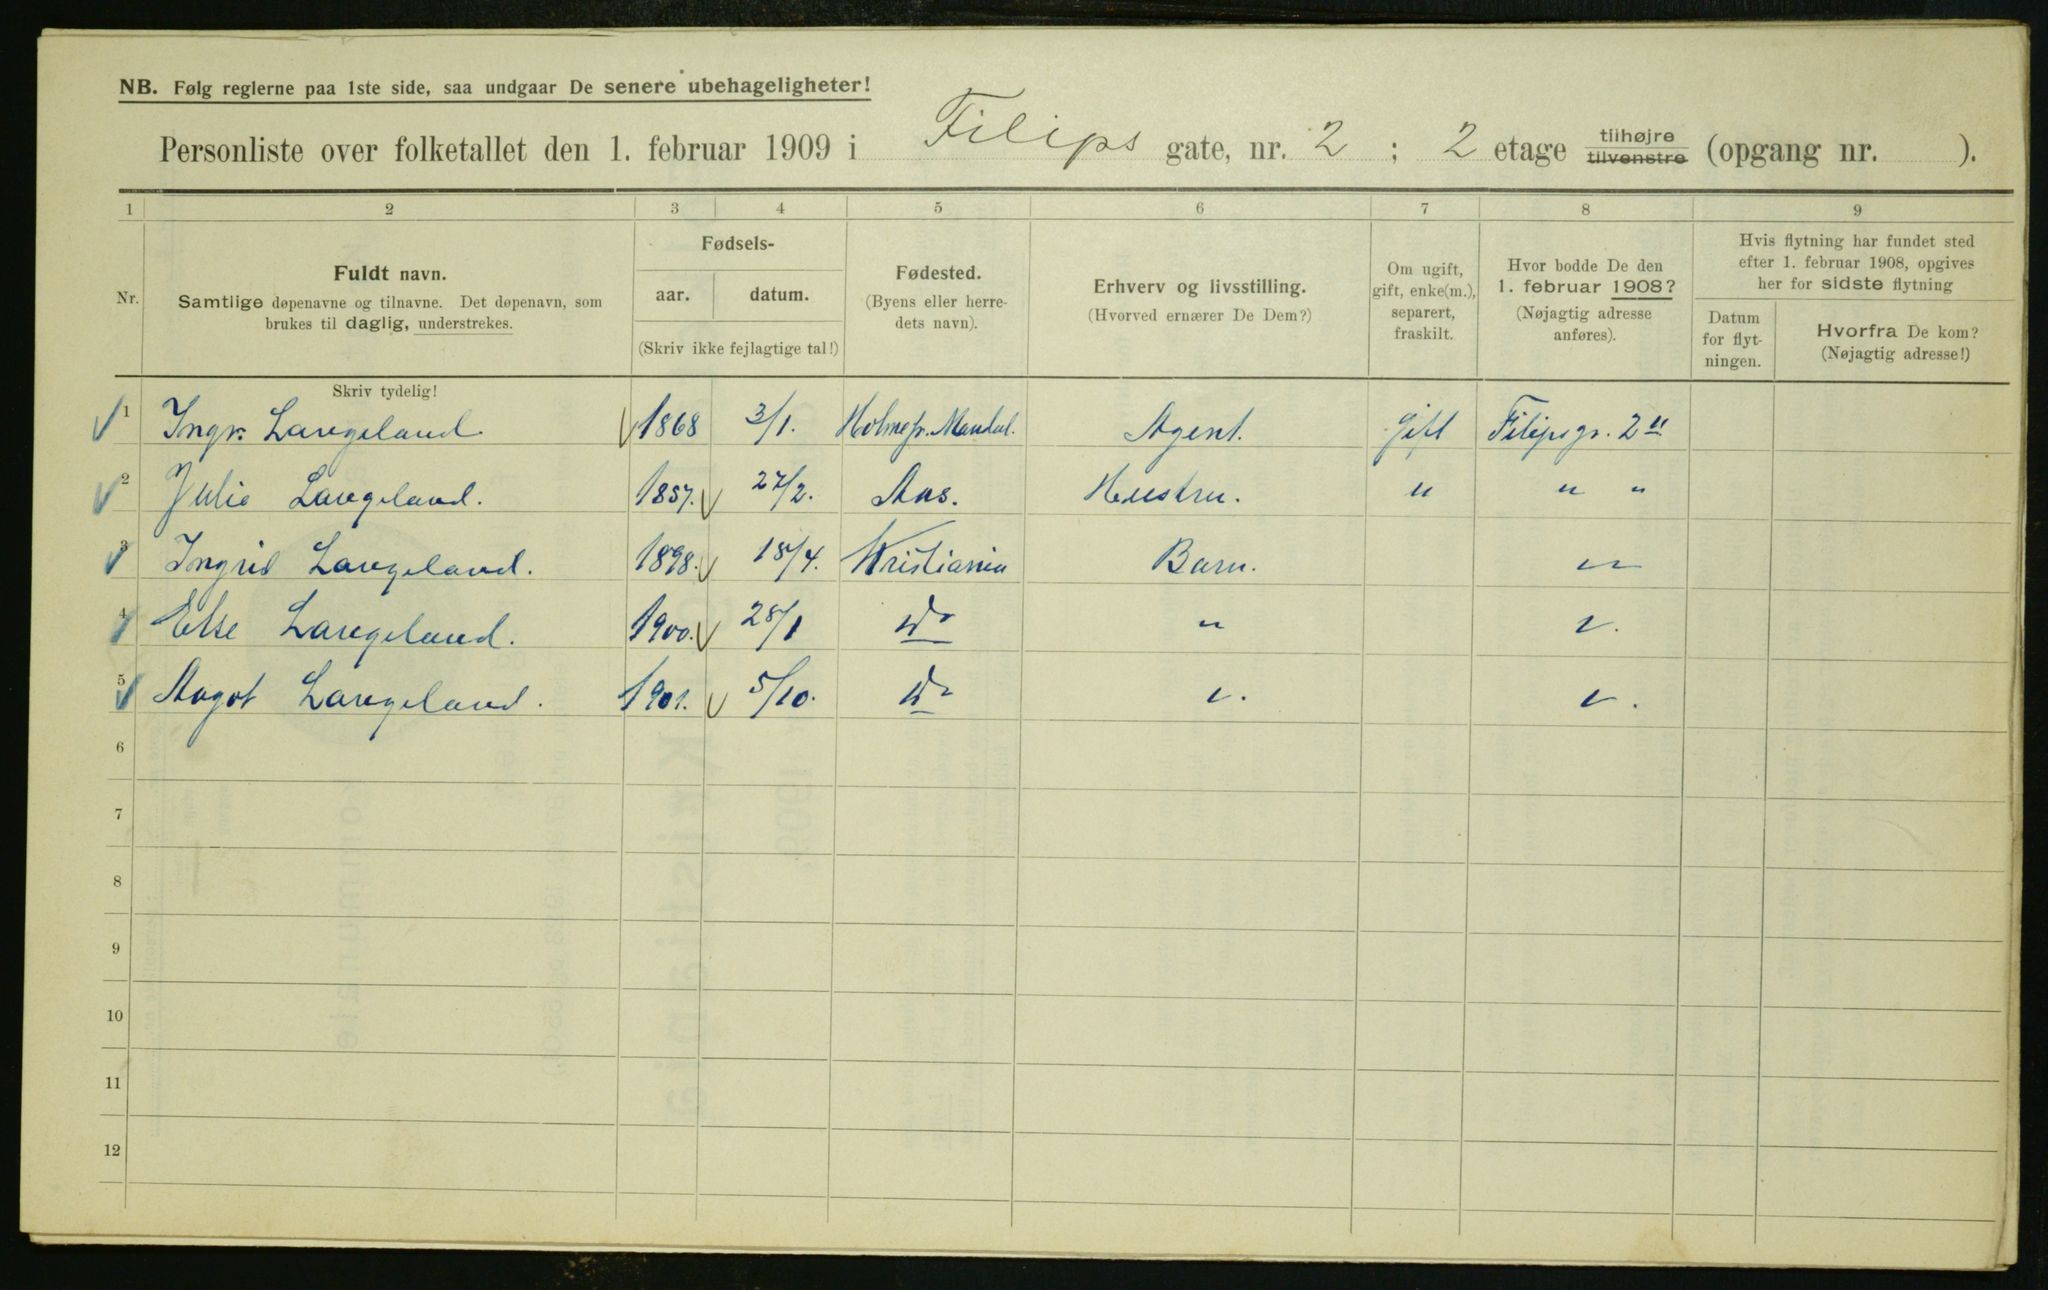 NB. Følg reglerne paa 1ste side, saa undgaar De senere ubehageligheter!
Personliste over folketallet den 1. februar 1909 i Filips gate, nr. 2 ; 2 etage tilhøjre tilvenstre (opgang nr. ).
1 2 3 4 5 6 7 8 9
Nr.
Fuldt navn.
Samtlige døpenavne og tilnavne. Det døpenavn, som
brukes til daglig, understrekes.
Fødsels-
aar. datum.
(Skriv ikke fejlagtige tal!)
Fødested.
(Byens eller herre-
dets navn).
Erhverv og livsstilling.
(Hvorved ernærer De Dem?)
Om ugift,
gift, enke(m.),
separert,
fraskilt.
Hvor bodde De den
1. februar 1908?
(Nøjagtig adresse
anføres).
Hvis flytning har fundet sted
efter 1. februar 1908, opgives
her for sidste flytning
Datum
for flyt-
ningen.
Hvorfra De kom?
(Nøjagtig adresse!)
Skriv tydelig!
1 Ingv. Langeland 1868 3/1. Holmegr. Mandal. Agent. Gift Filipsgr. 2 II
2 Julie Langeland. 1857. 27/2. Aas. Hustru. " " "
3 Ingrid Langeland. 1898. 18/4. Kristiania Barn. "
4 Else Langeland. 1900. 28/1 do " "
5 Aagot Langeland. 1901. 5/10. do " "
6
7
8
9
10
11
12